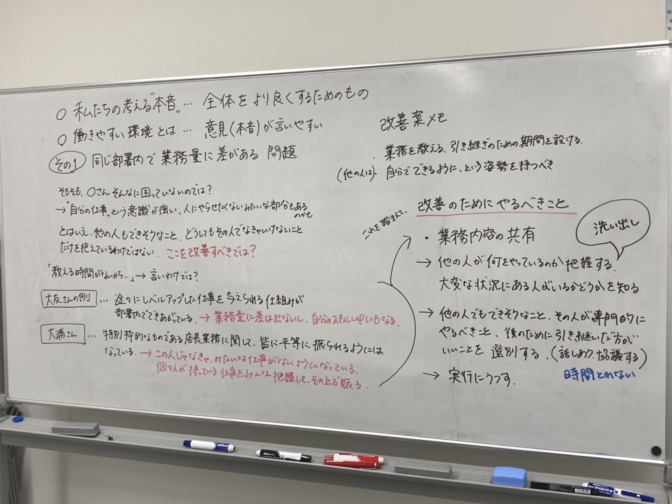 ○ 私たちの考える"本音"… 全体をより良くするためのもの
○ 働きやすい環境とは … 意見(本音)が言いやすい
その1 同じ部署内で業務量に差がある 問題
そもそも、○さんそんなに困っていないのでは?
→"自分の仕事"という意識が強い、人にやらせたくないみたいな部分もある
のかも
とはいえ、他の人もできそうなこと、どうしてもその人でなきゃいけないこと
だけを抱えているわけではない。ここを改善すべきでは?
「教える時間がないから…」→ 言いわけでは?
大友さんの例 … 逆々にレベルアップした仕事を与えられる仕組みが
部署内でできあがっている。→ 業務量に差は出ないし、自分のスキルUPにもなる。
大浦さん … 特別枠的なものである店長業務に関して、皆に平等に振られるようには
なっている。→ この人じゃなきゃ、みたいな仕事がないようになっている。
個々人が持っている仕事をみんな把握して、その上で振る。
改善案メモ
業務を教える、引き継ぎのための期間を設ける。
(他の人は)自分でできるように、という姿勢を持つべき
これを踏まえて、
改善のためにやるべきこと
・業務内容の共有
洗い出し
→ 他の人が何をやっているのか把握する。
大変な状況にある人がいるかどうかを知る
→ 他の人でもできそうなこと、その人が専門的に
やるべきこと、後のために引き継いだ方が
いいことを選別する。(話し合い、協議する)
→ 実行にうつす。
時間とれない